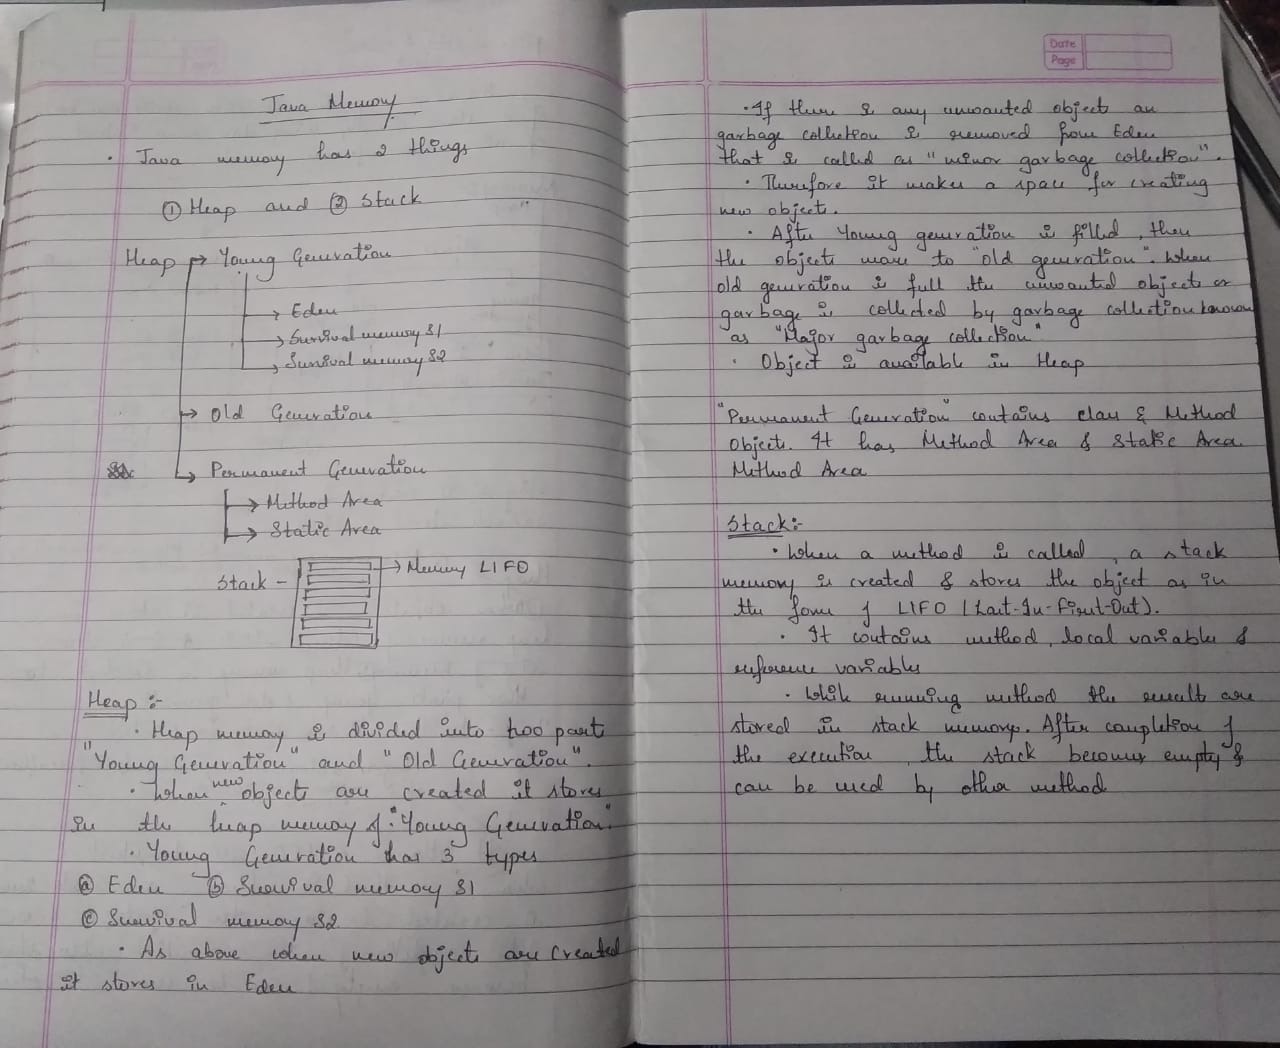 Java Memory
· Java memory has 2 things
① Heap and ② Stack
Heap → Young Generation
→ Eden
→ Survival memory S1
→ Survival memory S2
→ Old Generation
→ Permanent Generation
→ Method Area
→ Static Area
Stack - → Memory LIFO
Heap :-
· Heap memory is divided into too part
"Young Generation" and "Old Generation".
· When new object are created it stores
in the heap memory of "Young Generation"
· Young Generation has 3 types
ⓐ Eden ⓑ Survival memory S1
ⓒ Survival memory S2
· As above when new object are created
it stores in Eden
Date
Page
· If there is any unwanted object an
garbage collection is removed from Eden
that is called as "minor garbage collection".
· Therefore it makes a space for creating
new object.
· After Young generation is filled, then
the objects move to "old generation". When
old generation is full the unwanted objects or
garbage is collected by garbage collection known
as "Major garbage collection"
· Object is available in Heap
"Permanent Generation" contains class & Method
Object. It has Method Area & Static Area.
Method Area
Stack :-
· When a method is called, a stack
memory is created & stores the object as in
the form of LIFO (Last-In-First-Out).
· It contains method, local variable &
reference variable
· While running method the results are
stored in stack memory. After completion of
the execution, the stack becomes empty &
can be used by other method